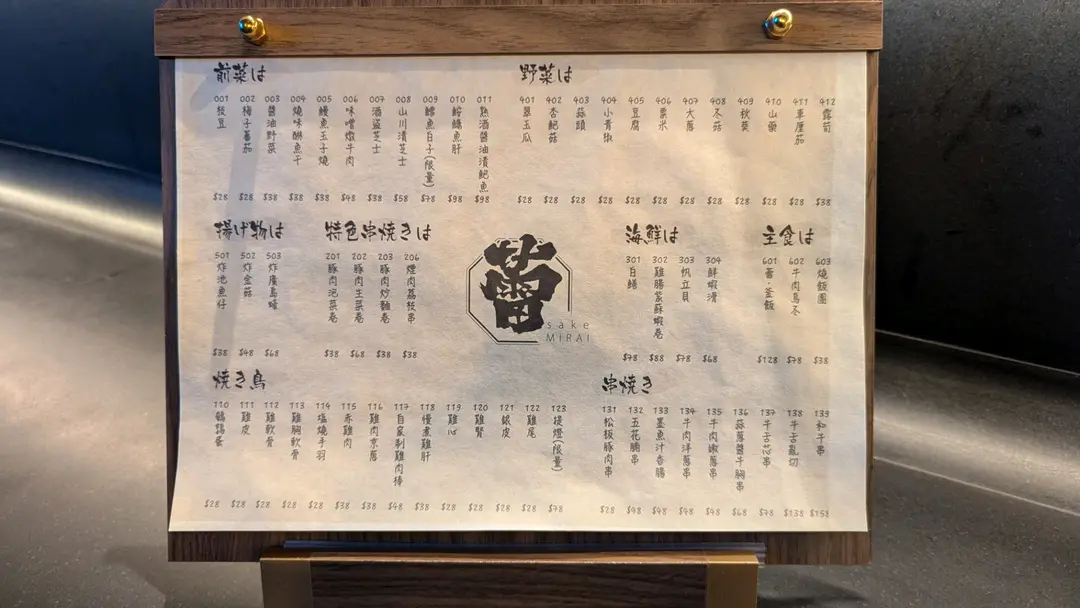 前菜は
001 枝豆 $28
002 梅子蕃茄 $28
003 醬油野菜 $38
004 燒味醂魚干 $38
005 鰻魚玉子燒 $38
006 味噌燉牛肉 $48
007 酒盜芝士 $38
008 山川漬芝士 $58
009 鱈魚白子(限量) $78
010 鮟鱇魚肝 $98
011 熟酒醬油漬鮑魚 $98
野菜は
401 翠玉瓜 $28
402 杏鮑菇 $28
403 蒜頭 $28
404 小青椒 $28
405 豆腐 $28
406 粟米 $28
407 大蔥 $28
408 冬菇 $28
409 秋葵 $28
410 山藥 $28
411 車厘茄 $28
412 露筍 $38
揚げ物は
501 炸池魚仔 $38
502 炸金菇 $48
503 炸廣島蠔 $68
特色串焼きは
201 豚肉泡菜卷 $38
202 豚肉生菜卷 $68
203 豚肉炒麵卷 $38
206 煙肉荔枝串 $38
蕾
sake
MIRAI
海鮮は
301 白鱔 $78
302 雞腸紫蘇蝦卷 $88
303 帆立貝 $78
304 鮮蝦滑 $68
主食は
601 蕾·釜飯 $128
602 牛肉烏冬 $78
603 燒飯團 $38
焼き鳥
110 鵪鶉蛋 $28
111 雞皮 $28
112 雞軟骨 $28
113 雞胸軟骨 $28
114 塩燒手羽 $28
115 赤雞肉 $38
116 雞肉京蔥 $38
117 自家剁雞肉棒 $48
118 慢煮雞肝 $38
119 雞心 $28
120 雞腎 $28
121 銀皮 $28
122 雞尾 $28
123 提燈(限量) $78
串焼き
131 松板豚肉串 $28
132 五花腩串 $48
133 墨魚汁香腸 $48
134 牛肉洋蔥串 $48
135 牛肉嫩蔥串 $48
136 蒜蔥醬牛胸串 $68
137 牛舌芯串 $78
138 牛舌亂切 $138
139 和牛串 $158